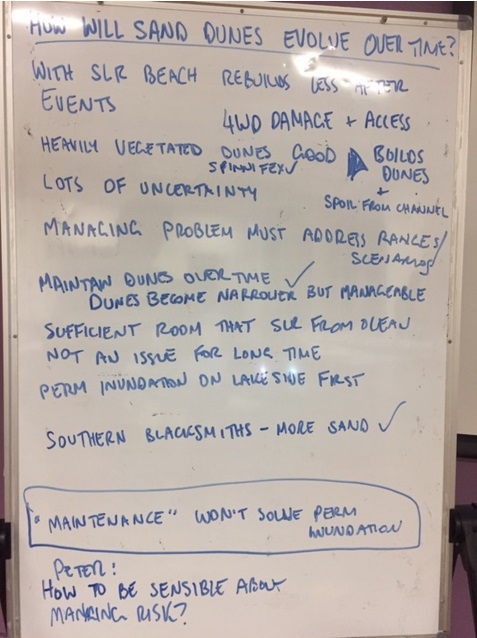 HOW WILL SAND DUNES EVOLVE OVER TIME?
WITH SLR BEACH REBUILDS LESS AFTER
EVENTS
4WD DAMAGE + ACCESS
HEAVILY VEGETATED DUNES GOOD ▶ BUILDS
SPINNIFEX ✓ DUNES
LOTS OF UNCERTAINTY
+
SPOIL FROM CHANNEL
MANAGING PROBLEM MUST ADDRESS RANGES/
SCENARIOS
MAINTAIN DUNES OVER TIME ✓
DUNES BECOME NARROWER BUT MANAGEABLE
SUFFICIENT ROOM THAT SLR FROM OCEAN
NOT AN ISSUE FOR LONG TIME
PERM INUNDATION ON LAKESIDE FIRST
SOUTHERN BLACKSMITHS - MORE SAND ✓
"MAINTENANCE" WON'T SOLVE PERM
INUNDATION
PETER:
HOW TO BE SENSIBLE ABOUT
RISK?